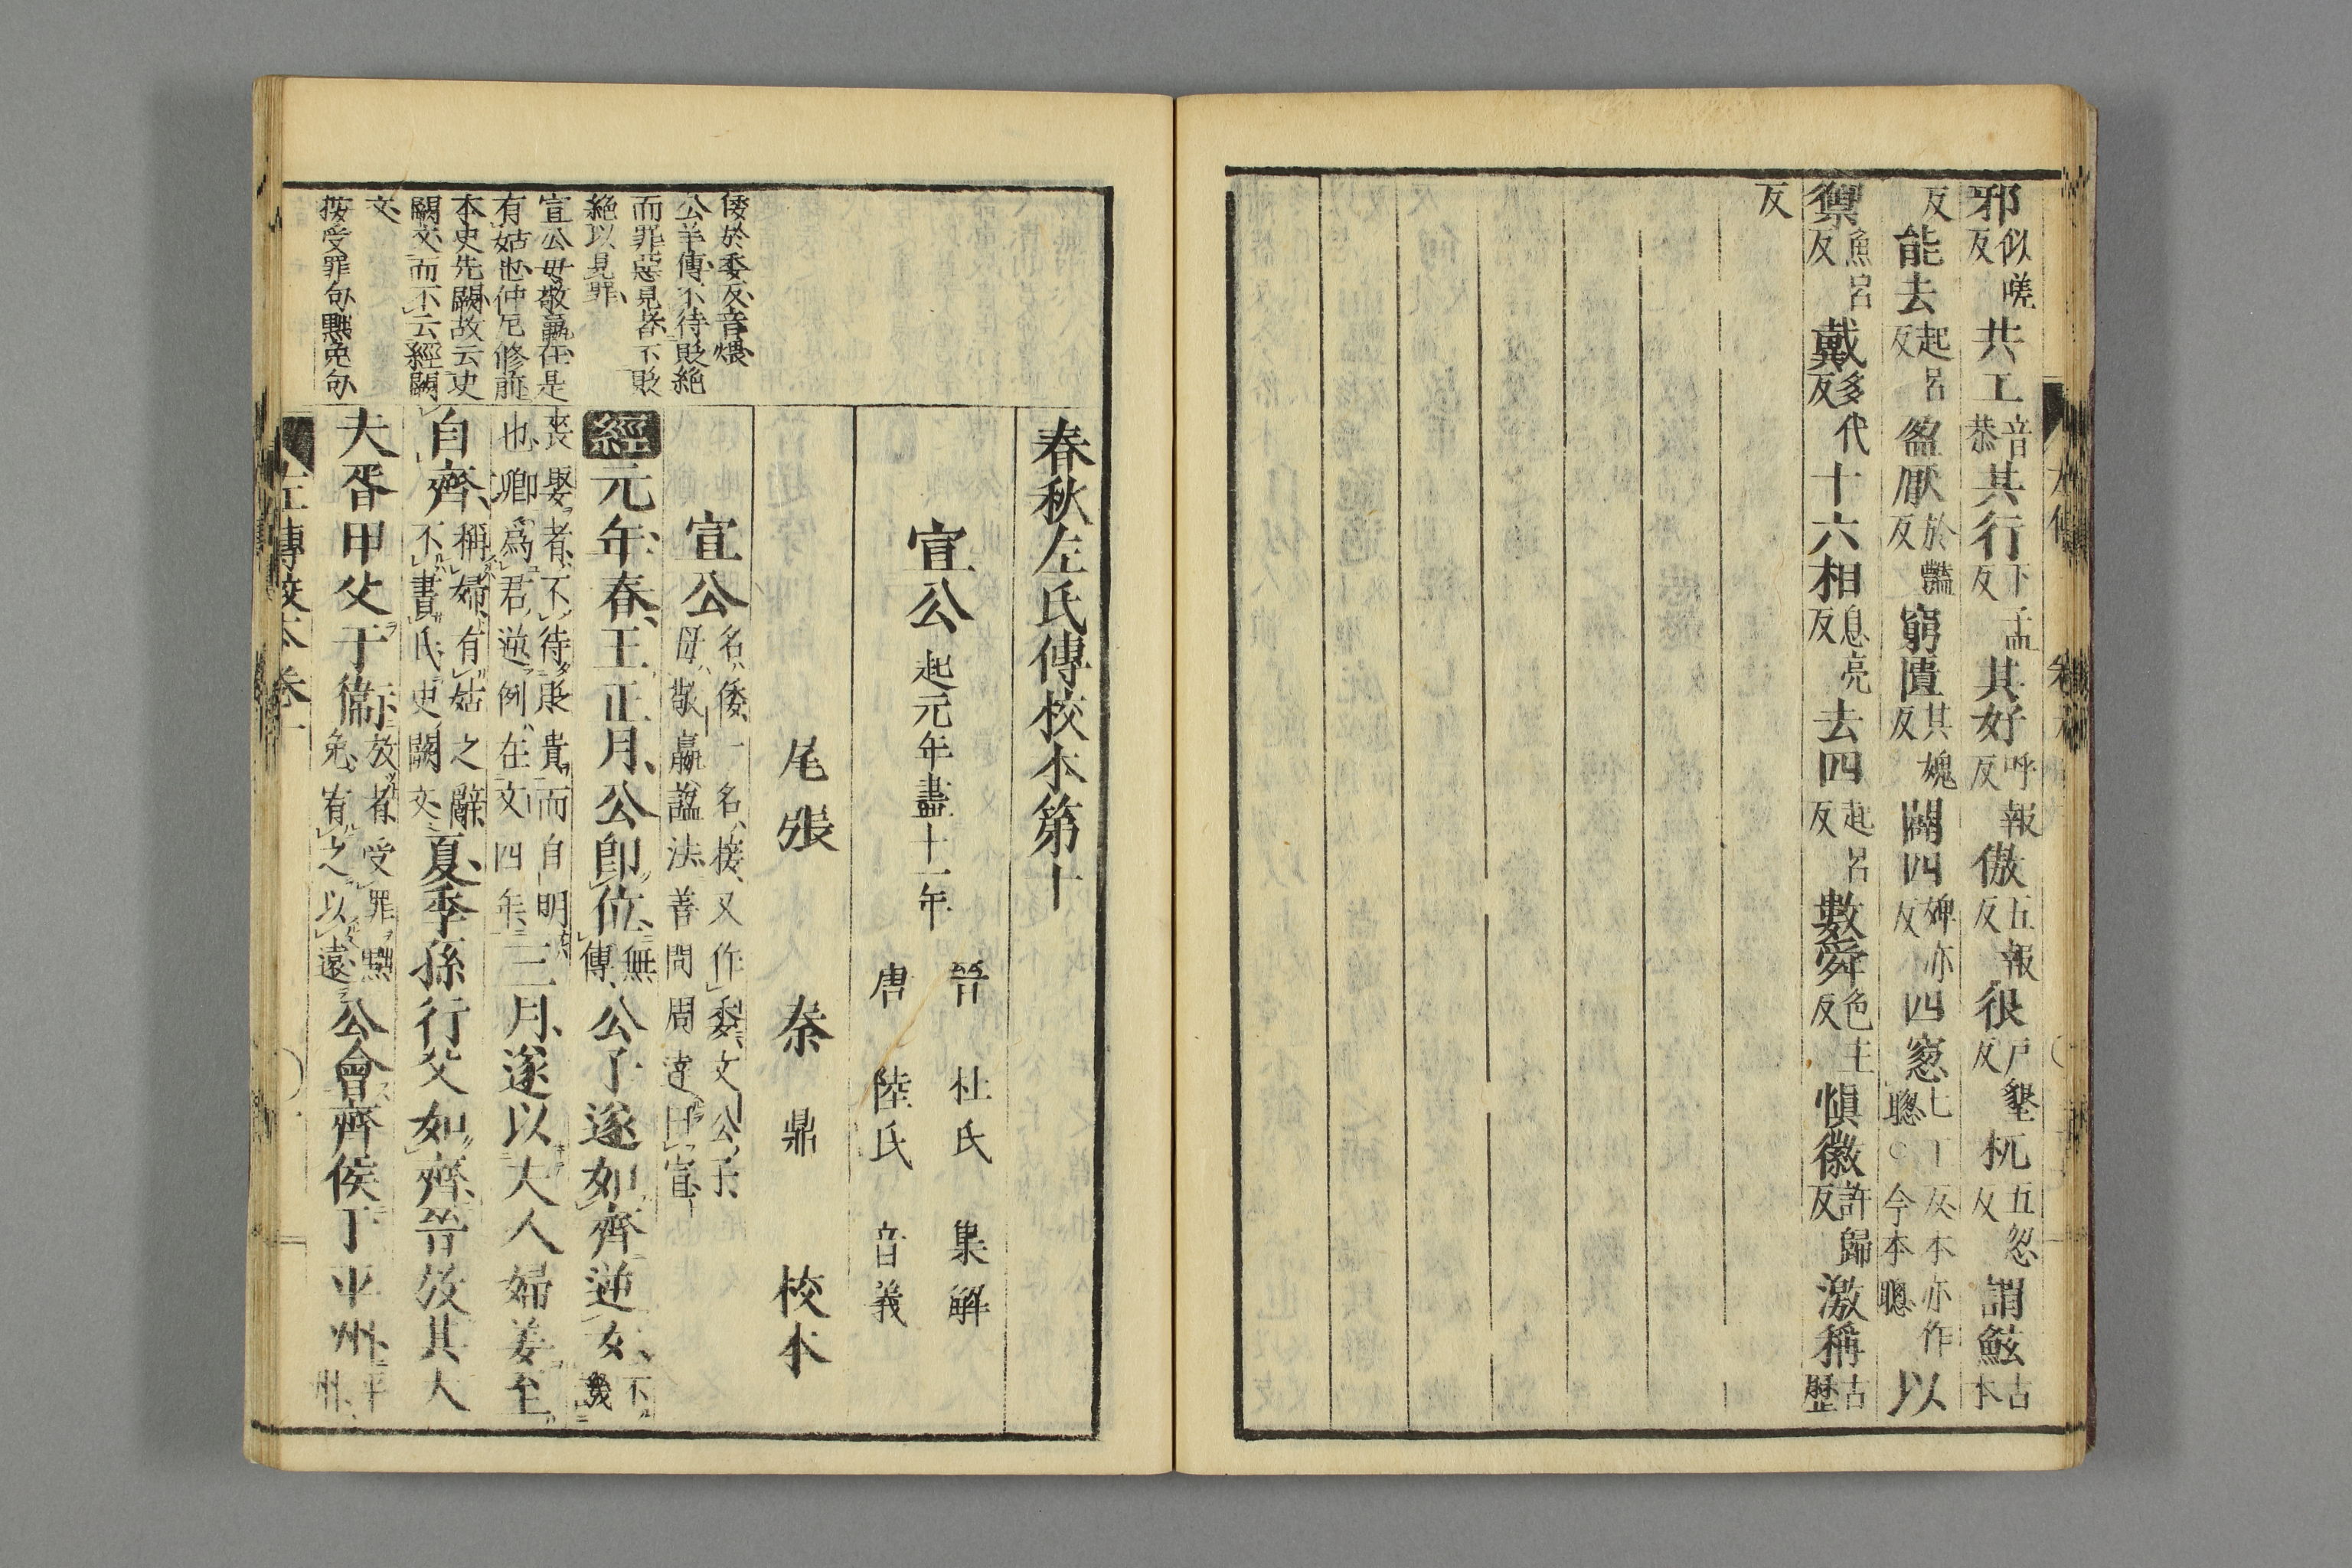 邪似嗟反共工音恭其行下孟反其好呼報反傲五報反很戸墾反杌五忽反謂鮌古本
反能去起呂反盈厭於豔反窮匱其媿反闢四婢亦反四窻七工反本亦作聰○今本聰以
禦魚呂反戴多代反十六相息亮反去四起呂反數舜色主反愼徽許歸反激稱古歷
反
春秋左氏傳校本第十
宣公起元年盡十一年
晉 杜氏 集解
唐 陸氏 音義
尾張 秦 鼎 校本
宣公名倭一名接又作委文公子母敬嬴謚法善問周達曰宣
經元年春王正月公卽位無傳公子遂如齊逆女不譏
喪娶者不待貶責而自明也卿爲君逆例在文四年三月遂以夫人婦姜至
自齊稱婦有姑之辭不書氏史闕文夏季孫行父如齊晉放其大
夫胥甲父于衞放者受罪黜免宥之以遠公會齊侯于平州平州
倭於委反音煨
公羊傳不待貶絶
而罪惡見者不貶
絶以見罪
宣公母敬嬴在是
有姑也仲尼修前
本史先闕故云史
闕文而不云經闕
文
按受罪句黜免句
左傳校本卷十